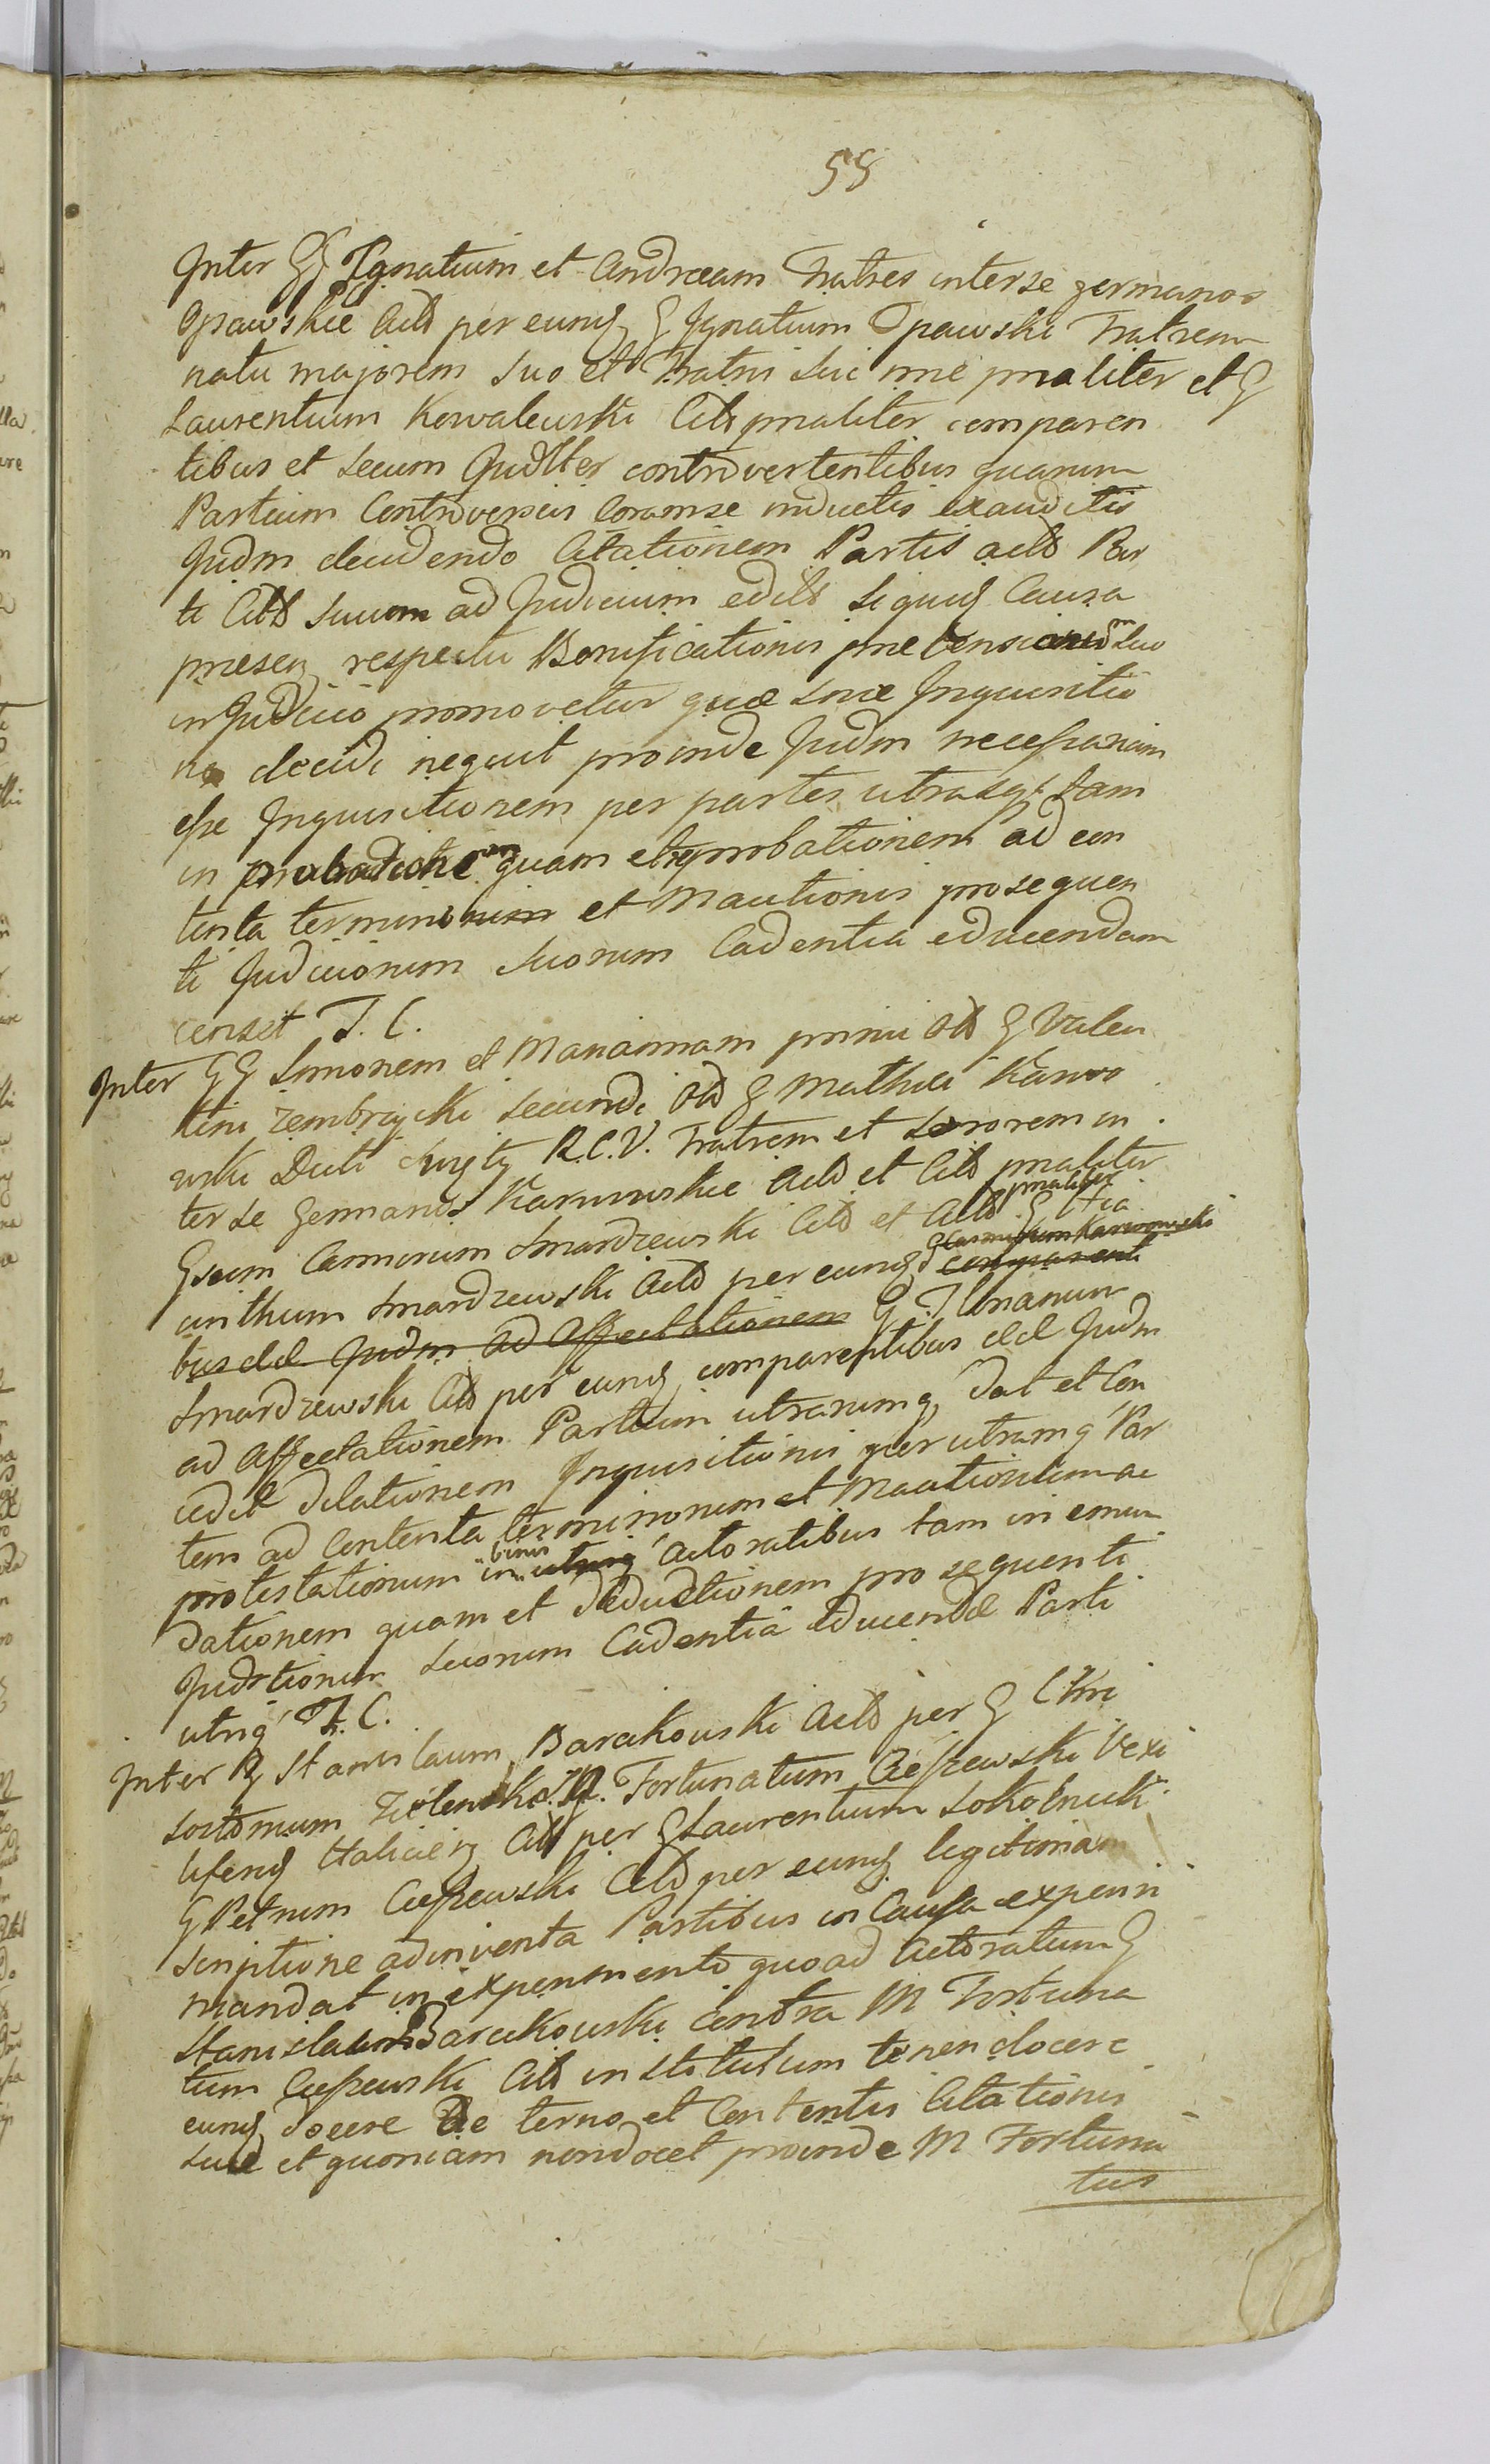 55
Inter GG Ignatium et Andream Fratres inter se germanos
Opawskie Acts per eunq G Ignatium Opawski Fratrem
natu majorem suo et Fratris sui nne pnaliter et G
Laurentium Kowalewski Cits pnaliter comparen
tibus et secum Judltter controvertentibus quarum
Partium Controversiis coram se inductis exauditis
Judm decidendo Citationem Partis acts Par
ti Cits suum ad Judicium edits siquid Causa
praesens respectu Bonificationis praetensionum suo
in Judicio promovetur quae sine Inquisitio
ne decidi nequit proinde Judm necessariam
esse Inquisitionem per partes utrasq tam
in probationem quam et reprobationem ad con
tenta terminorum et Mautionis prosequen
ti Judiciorum suorum Cadentia educendam
censet T. C.
Inter GG Simonem et Mariannam primi ols G Valen
tini Zembrzycki secundi ols G Mathei Karwo
wski Ducti Suszty R.C.V. Fratrem et Sororem in
ter se Germanos Karwowskie Acts et Cits pnaliter
Gsum Casimirum Smardzewski Cits et Acts pnaliter G Hia
cinthum Smardzewski Acts per eunq G Casimirum Karwowski comparenti
bus eld Judm ad Affectationem G. T Unanum
Smardzewski Cits per eunq comparentibus eld Judm
ad Affectationem Partium utrarumq dat et Con
cedit dilationem Inquisitionis per utramq Par
tem ad Contenta terminorum et Mautionum ac
protestationum in binis utrinq Actoratibus tam in emun
dationem quam et deductionem prosequenti
Judtionum suorum Cadentia educendae Parti
utriq T. C.
Inter G Stanislaum Barcikowski Acts per G Chri
sostomum Zielenski M. Fortunatum Cieszewski Vexi
liferum Haliciens Cits per G Laurentium Sokolnicki
G Petrum Cieszewski Cits per eunq legitima in
scriptione adinventa Partibus in Causa experiri
mandat in experimento quoad Actoratum G
Stanislaum Barcikowski contra M Fortuna
tum Cieszewski Cits institutum tenen docere
eunq docere de termo et Contentis Citationis
suae et quoniam non docet proinde M Fortuna
tus